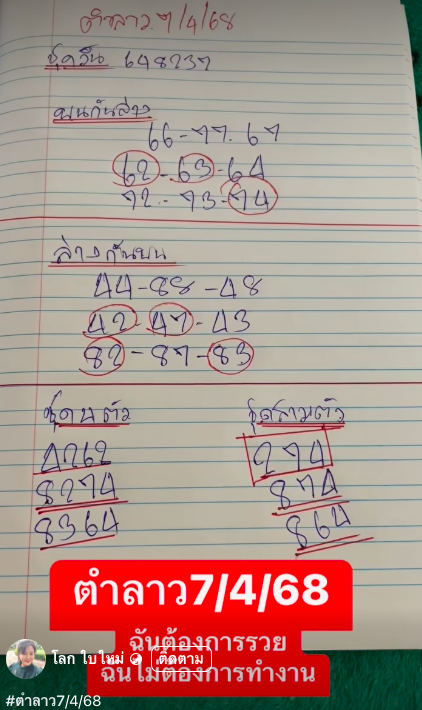 ตำลาว 7/4/68
ชุดวิน 648237
บนกันล่าง
66-77-67
62-63-64
72-73-74
ล่างกันบน
44-88-48
42-47-43
82-87-83
ชุด 4 ตัว
ชุดสามตัว
4262
274
8274
874
8364
864
ตำลาว7/4/68
ฉันต้องการรวย
โลก ใบใหม่
ติดตาม
ฉันไม่ต้องการทำงาน
#ตำลาว7/4/68